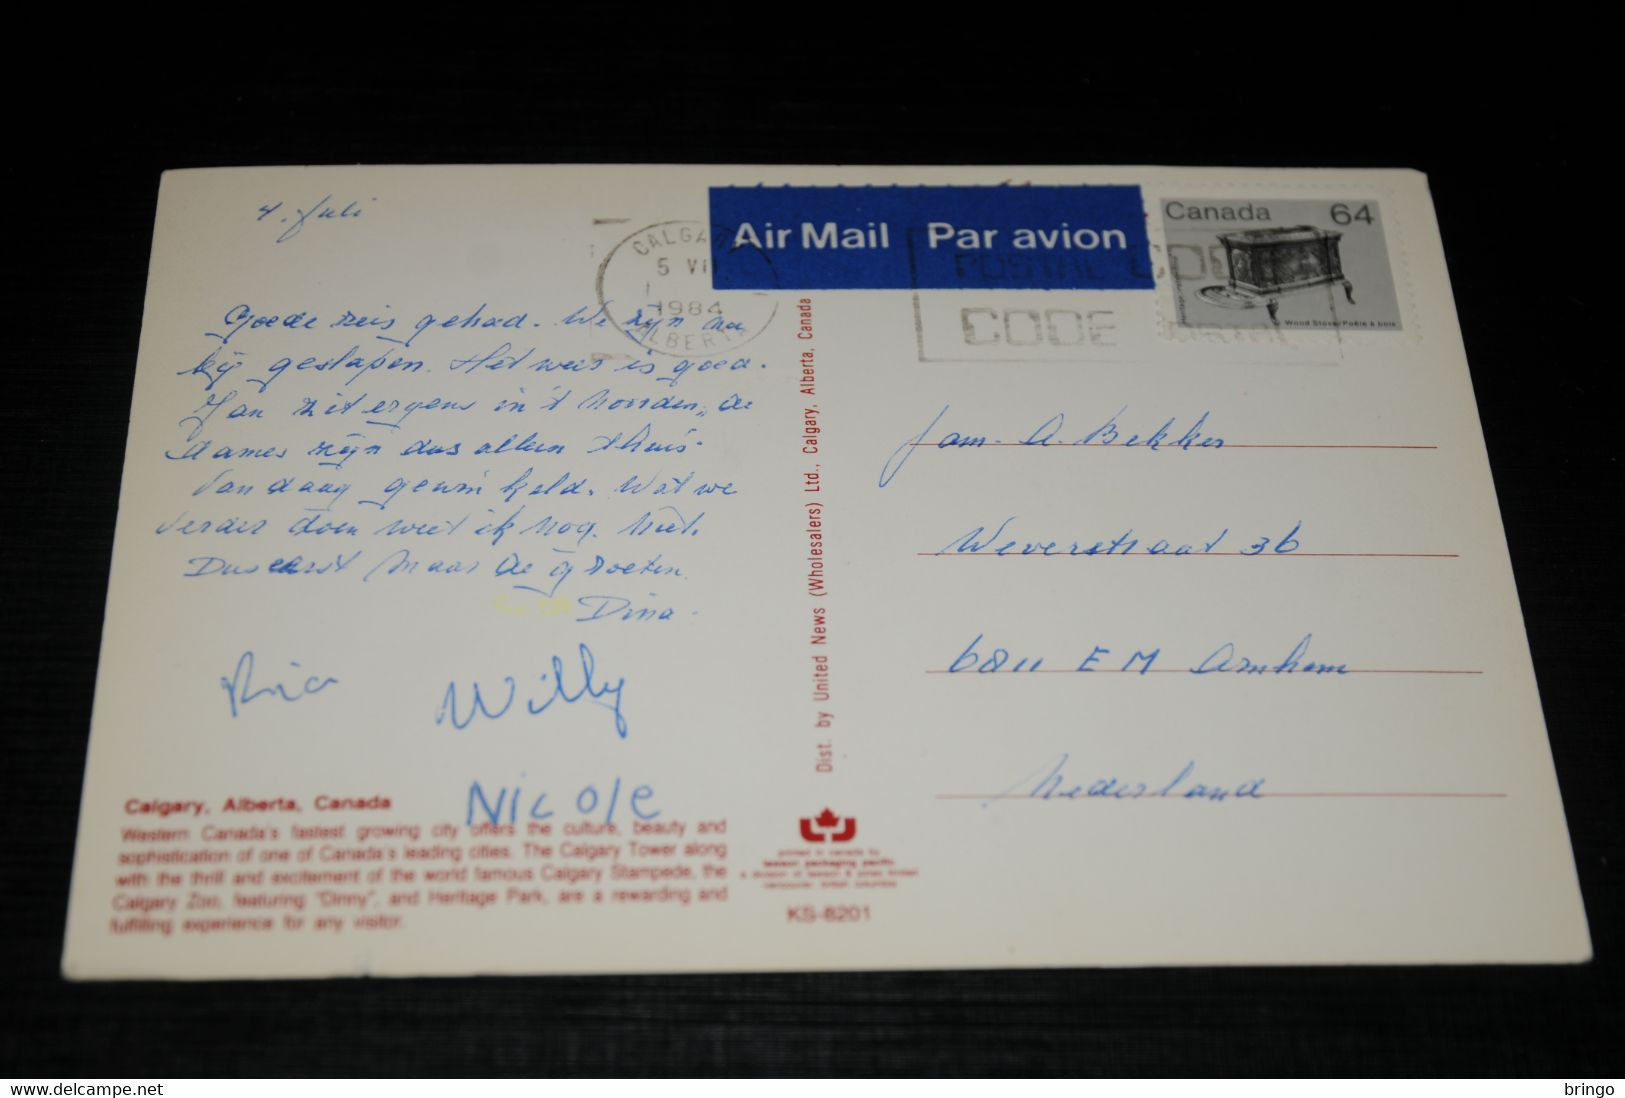 4. Juli
Goede reis gehad. We zijn nu
bij geslapen. Het weer is goed.
Jan zit ergens in 't noorden, de
dames zijn dus alleen thuis.
Vandaag gewinkeld. Wat we
verder doen weet ik nog niet.
Dus eerst maar de groeten
Dina.
Ria
Willy
Nicole
Calgary, Alberta, Canada
Western Canada's fastest growing city offers the culture, beauty and
sophistication of one of Canada's leading cities. The Calgary Tower along
with the thrill and excitement of the world famous Calgary Stampede, the
Calgary Zoo, featuring "Dinny", and Heritage Park, are a rewarding and
fulfilling experience for any visitor.
Dist. by United News (Wholesalers) Ltd., Calgary, Alberta, Canada
printed in canada by
lawson packaging pacific
a division of lawson & jones limited
vancouver, british columbia
KS-8201
CALGARY
5 VII
1984
ALBERTA
Air Mail Par avion
POSTAL CODE
CODE POSTAL
Canada 64
Wood Stove/Poêle à bois
Fam. A. Bekker
Weverstraat 36
6811 EM Arnhem
Nederland
bringo